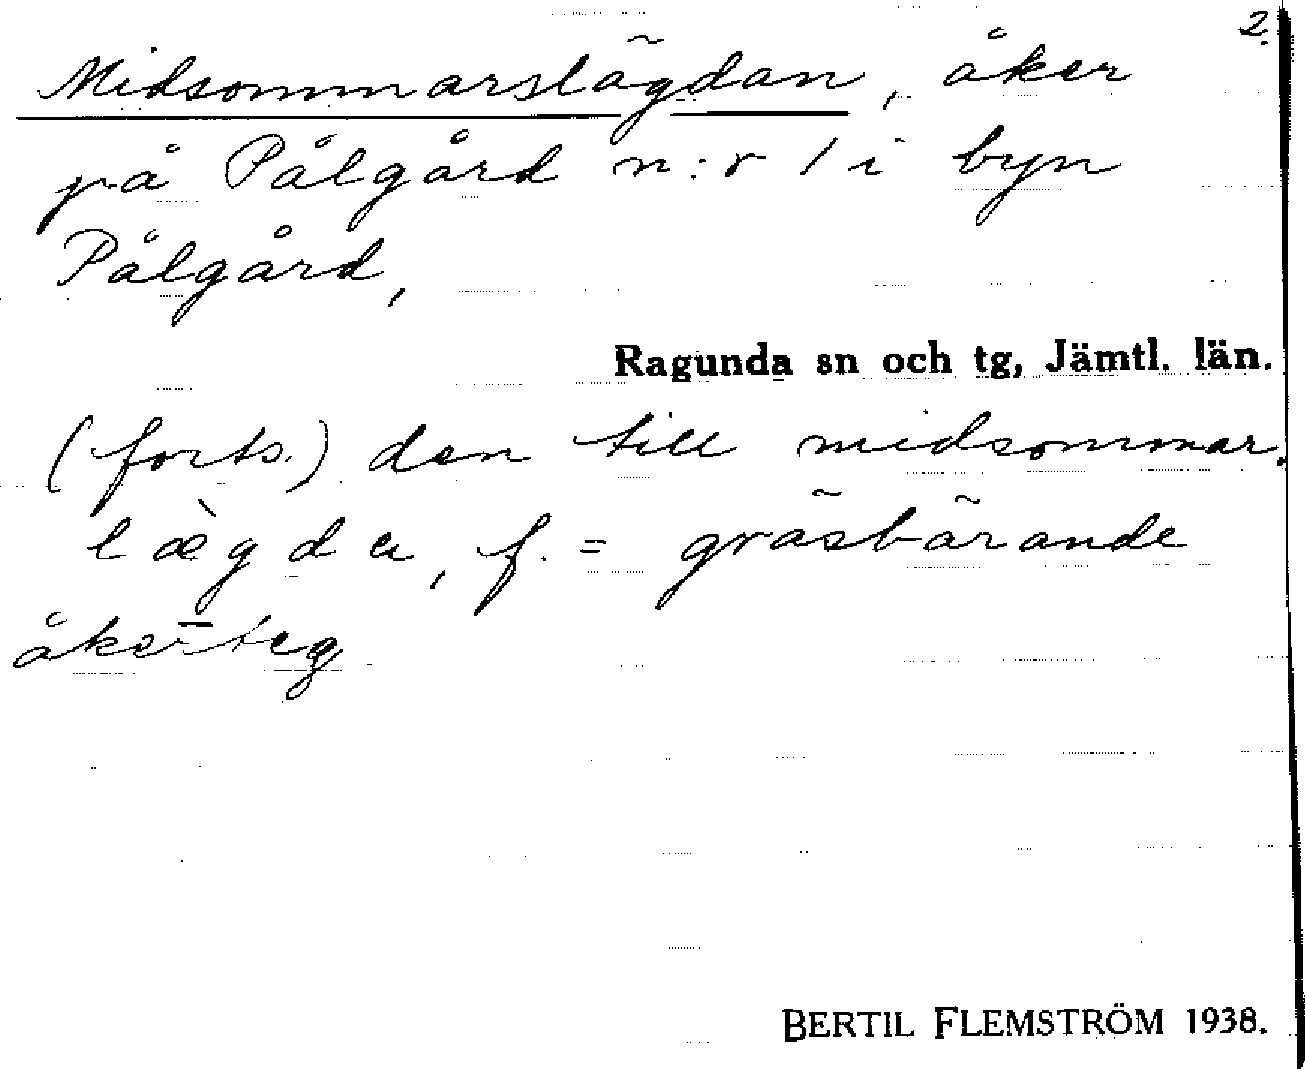 2.
Midsommarslägdan, åker
på Pålgård n:r 1 i byn
Pålgård,
Ragunda sn och tg, Jämtl. län.
(forts.) den till midsommar.
læ̀gda, f. = gräsbärande
åkerteg
BERTIL FLEMSTRÖM 1938.